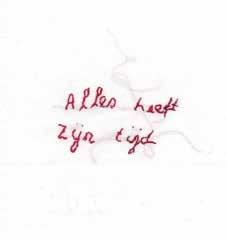 Alles heeft
zijn tijd